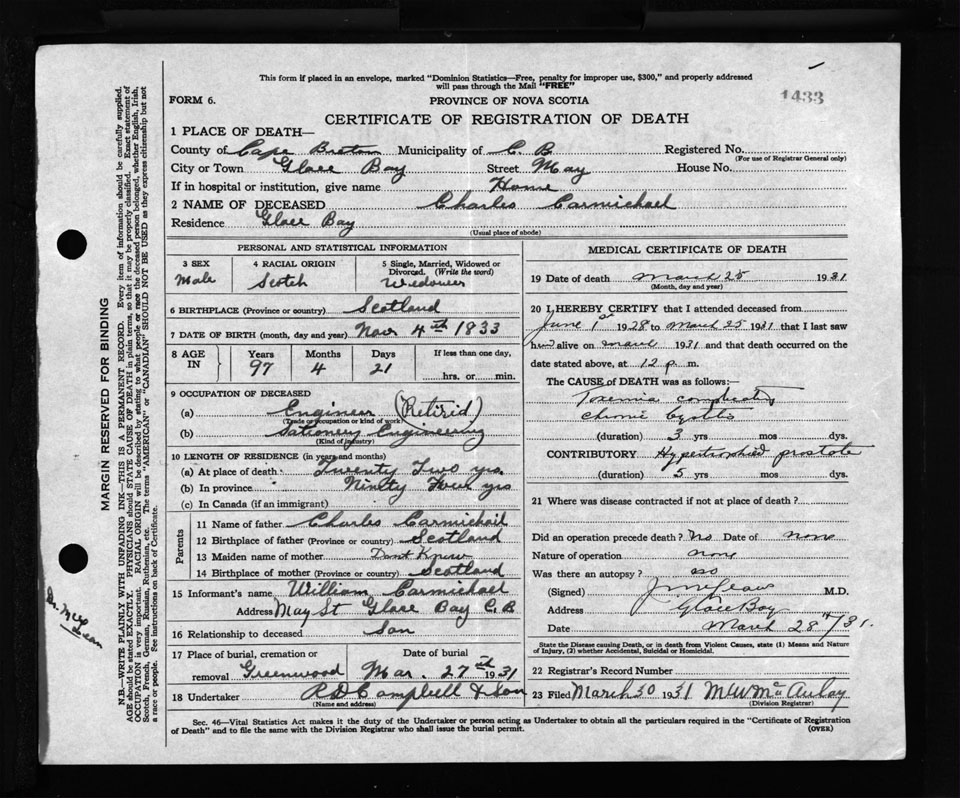 This form if placed in an envelope, marked "Dominion Statistics—Free, penalty for improper use, $300," and properly addressed
will pass through the Mail "FREE"
1433
FORM 6.
PROVINCE OF NOVA SCOTIA
CERTIFICATE OF REGISTRATION OF DEATH
1 PLACE OF DEATH—
County of Cape Breton Municipality of C. B. Registered No.
(For use of Registrar General only)
City or Town Glace Bay Street May House No.
If in hospital or institution, give name Home
2 NAME OF DECEASED Charles Carmichael
Residence Glace Bay
(Usual place of abode)
PERSONAL AND STATISTICAL INFORMATION
3 SEX
Male
4 RACIAL ORIGIN
Scotch
5 Single, Married, Widowed or
Divorced. (Write the word)
Widower
6 BIRTHPLACE (Province or country) Scotland
7 DATE OF BIRTH (month, day and year) Nov 4th 1833
8 AGE IN
Years Months Days If less than one day,
97 4 21 hrs. or min.
9 OCCUPATION OF DECEASED
(a) Engineer (Retirid)
(Trade or occupation or kind of work)
(b) Stationery Engineering
(Kind of industry)
10 LENGTH OF RESIDENCE (in years and months)
(a) At place of death Twenty Two yrs
(b) In province Ninety Four yrs
(c) In Canada (if an immigrant)
Parents
11 Name of father Charles Carmichail
12 Birthplace of father (Province or country) Scotland
13 Maiden name of mother Dont Know
14 Birthplace of mother (Province or country) Scotland
15 Informant's name William Carmichael
Address May St Glace Bay C. B.
16 Relationship to deceased Son
17 Place of burial, cremation or Date of burial
removal Greenwood Mar. 27th 1931
18 Undertaker R D Campbell & Son
(Name and address)
MEDICAL CERTIFICATE OF DEATH
19 Date of death March 25 1931
(Month, day and year)
20 I HEREBY CERTIFY that I attended deceased from
June 1st 1928 to March 25 1931 that I last saw
him alive on March 1931 and that death occurred on the
date stated above, at 12 p. m.
The CAUSE of DEATH was as follows:
Toxemia
chronic Cystitis
(duration) 3 yrs mos dys.
CONTRIBUTORY Hypertrophied prostate
(duration) 5 yrs mos dys.
21 Where was disease contracted if not at place of death?
Did an operation precede death? No Date of none
Nature of operation none
Was there an autopsy? no
(Signed) M.D.
Address Glace Bay
Date March 28th/31.
State the Disease causing Death, or in death from Violent Causes, state (1) Means and Nature
of Injury, (2) whether Accidental, Suicidal or Homicidal.
22 Registrar's Record Number
23 Filed March 30 1931 McAulay
(Division Registrar)
Sec. 46—Vital Statistics Act makes it the duty of the Undertaker or person acting as Undertaker to obtain all the particulars required in the "Certificate of Registration
of Death" and to file the same with the Division Registrar who shall issue the burial permit. (OVER)
MARGIN RESERVED FOR BINDING
N.B.—WRITE PLAINLY WITH UNFADING INK—THIS IS A PERMANENT RECORD. Every item of information should be carefully supplied.
AGE should be stated EXACTLY. PHYSICIANS should STATE CAUSE OF DEATH in plain terms, so that it may be properly classified. Exact statement of
OCCUPATION is very important. RACIAL ORIGIN will be described by stating to what people or race the deceased person belonged, whether English, Irish,
Scotch, French, German, Russian, Ruthenian, etc. The terms "AMERICAN" or "CANADIAN" SHOULD NOT BE USED as they express citizenship but not
a race or people. See instructions on back of Certificate.